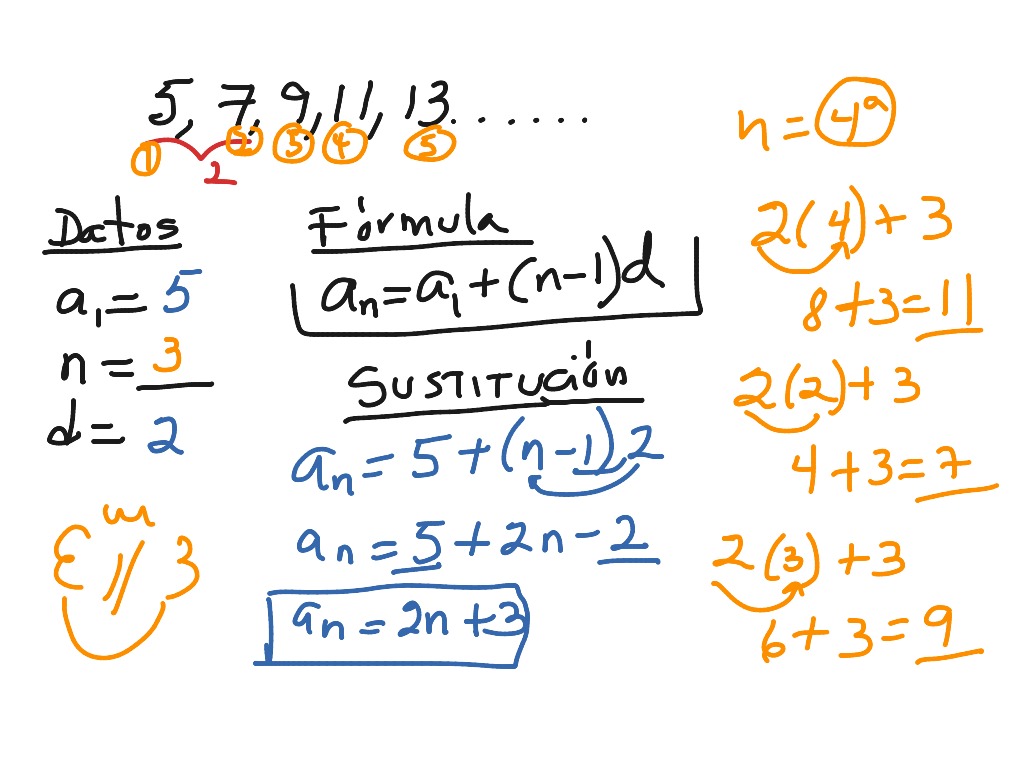 5, 7, 9, 11, 13 . . . . . .
① ② ③ ④ ⑤
2
Datos
a₁ = 5
n = 3
d = 2
Fórmula
aₙ = a₁ + (n-1)d
Sustitución
aₙ = 5 + (n-1) 2
aₙ = 5 + 2n - 2
aₙ = 2n + 3
n = 4ª
2(4) + 3
8 + 3 = 11
2(2) + 3
4 + 3 = 7
2(3) + 3
6 + 3 = 9